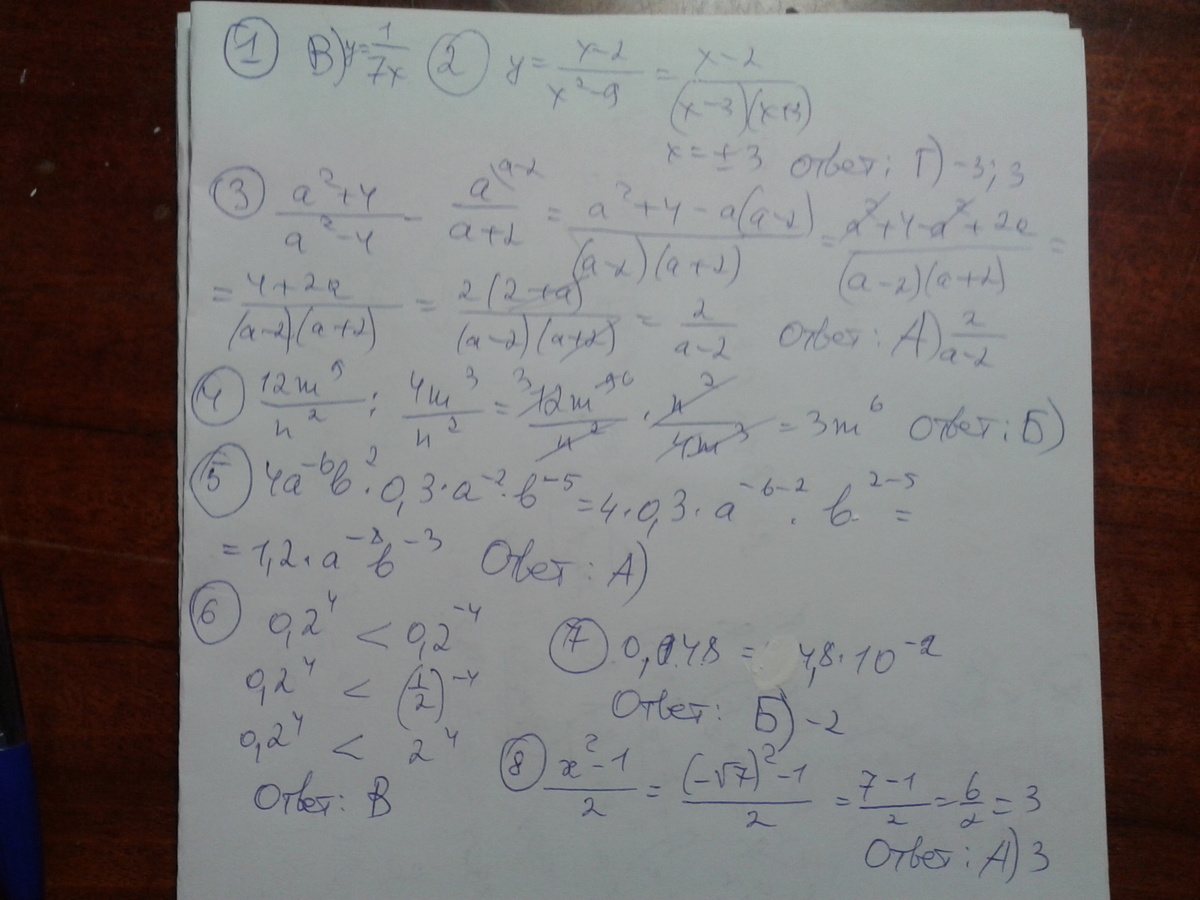 ① В) y = 1/7x ② y = x-2/x²-9 = x-2/(x-3)(x+3)
x = ±3 Ответ: Г) -3; 3
③ a²+4/a²-4 - a^(a-2/a+2 = a²+4-a(a-2)/(a-2)(a+2) = a²+4-a²+2a/(a-2)(a+2) =
= 4+2a/(a-2)(a+2) = 2(2+a)/(a-2)(a+2) = 2/a-2 Ответ: А) 2/a-2
④ 12m⁹/n² : 4m³/n² = ³12m⁹⁶/n² · n²/4m³ = 3m⁶ Ответ: Б)
⑤ 4a⁻⁶b² · 0,3 · a⁻² · b⁻⁵ = 4 · 0,3 · a⁻⁶⁻² · b²⁻⁵ =
= 1,2 · a⁻⁸b⁻³ Ответ: А)
⑥ 0,2⁴ < 0,2⁻⁴
0,2⁴ < (1/2)⁻⁴
0,2⁴ < 2⁴
Ответ: В
⑦ 0,048 = 4,8·10⁻²
Ответ: Б) -2
⑧ x²-1/2 = (-√7)²-1/2 = 7-1/2 = 6/2 = 3
Ответ: А) 3